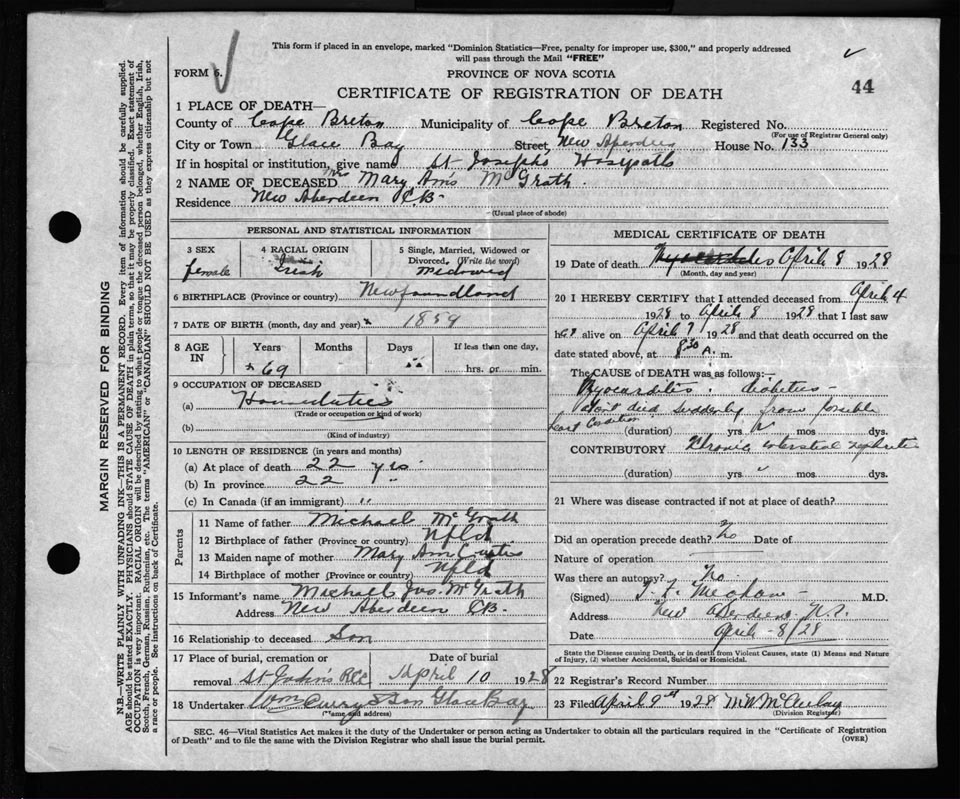 This form if placed in an envelope, marked "Dominion Statistics—Free, penalty for improper use, $300," and properly addressed
will pass through the Mail "FREE"
FORM 6.
PROVINCE OF NOVA SCOTIA
44
CERTIFICATE OF REGISTRATION OF DEATH
1 PLACE OF DEATH—
County of Cape Breton Municipality of Cape Breton Registered No.
(For use of Registrar General only)
City or Town Glace Bay Street New Aberdeen House No. 133
If in hospital or institution, give name St Joseph's Hospital
2 NAME OF DECEASED Mrs Mary Ann McGrath
Residence New Aberdeen C.B.
(Usual place of abode)
PERSONAL AND STATISTICAL INFORMATION
3 SEX
female
4 RACIAL ORIGIN
Irish
5 Single, Married, Widowed or
Divorced, (Write the word)
Widowed
6 BIRTHPLACE (Province or country) Newfoundland
7 DATE OF BIRTH (month, day and year) 1859
8 AGE IN
Years Months Days If less than one day,
69 hrs. or min.
9 OCCUPATION OF DECEASED
(a) Home duties
(Trade or occupation or kind of work)
(b)
(Kind of industry)
10 LENGTH OF RESIDENCE (in years and months)
(a) At place of death 22 yrs.
(b) In province 22 "
(c) In Canada (if an immigrant) "
Parents
11 Name of father Michael McGrath
12 Birthplace of father (Province or country) Nfld
13 Maiden name of mother Mary Ann
14 Birthplace of mother (Province or country) Nfld
15 Informant's name Michael Jos. McGrath
Address New Aberdeen CB.
16 Relationship to deceased Son
17 Place of burial, cremation or
removal St John's
Date of burial
April 10 1928
18 Undertaker Wm Curry & Son Glace Bay
(Name and address)
MEDICAL CERTIFICATE OF DEATH
19 Date of death April 8 1928
(Month, day and year)
20 I HEREBY CERTIFY that I attended deceased from April 4
1928 to April 8 1928 that I last saw
her alive on April 7 1928 and that death occurred on the
date stated above, at 8 30 a. m.
The CAUSE OF DEATH was as follows:—
Myocarditis. diabetes -
died suddenly from possible
heart
(duration) yrs mos dys.
CONTRIBUTORY Chronic interstitial nephritis
(duration) yrs mos dys.
21 Where was disease contracted if not at place of death?
Did an operation precede death? No Date of
Nature of operation
Was there an autopsy? No
(Signed) M.D.
Address New Aberdeen N.S.
Date April - 8/28
State the Disease causing Death, or in death from Violent Causes, state (1) Means and Nature
of Injury, (2) whether Accidental, Suicidal or Homicidal.
22 Registrar's Record Number
23 Filed April 9th 1928 M.W. McAulay
(Division Registrar)
SEC. 46—Vital Statistics Act makes it the duty of the Undertaker or person acting as Undertaker to obtain all the particulars required in the "Certificate of Registration
of Death" and to file the same with the Division Registrar who shall issue the burial permit.
(OVER)
MARGIN RESERVED FOR BINDING
N.B.—WRITE PLAINLY WITH UNFADING INK—THIS IS A PERMANENT RECORD. Every item of information should be carefully supplied.
AGE should be stated EXACTLY. PHYSICIANS should STATE CAUSE OF DEATH in plain terms, so that it may be properly classified. Exact statement of
OCCUPATION is very important. RACIAL ORIGIN will be described by stating to what people or tongue the deceased person belonged, whether English, Irish,
Scotch, French, German, Russian, Ruthenian, etc. The terms "AMERICAN" or "CANADIAN" SHOULD NOT BE USED as they express citizenship but not
a race or people. See instructions on back of Certificate.